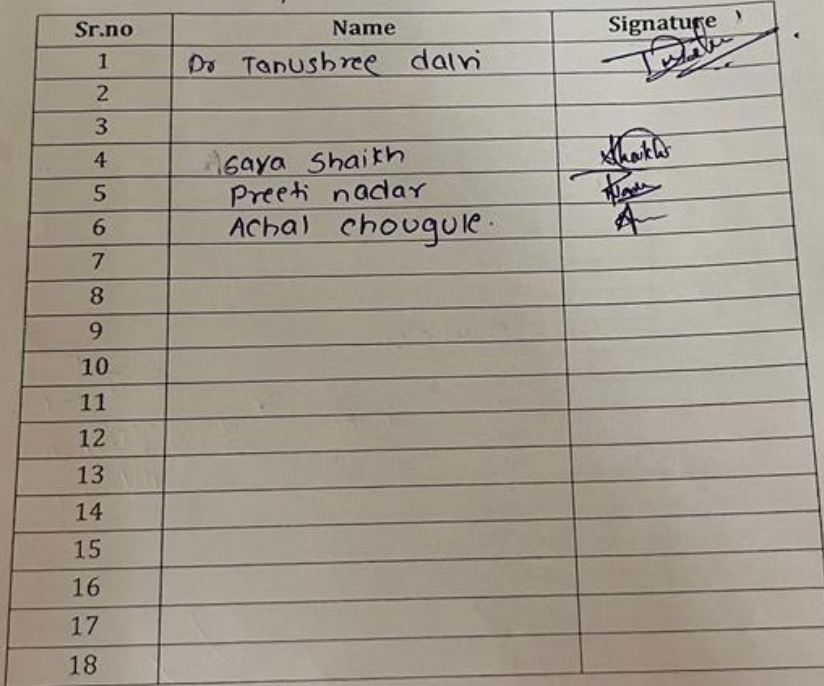 Sr.no Name Signature
1 Dr Tanushree dalvi
2
3
4 saya Shaikh Shaikh
5 Preeti nadar
6 Achal chougule.
7
8
9
10
11
12
13
14
15
16
17
18